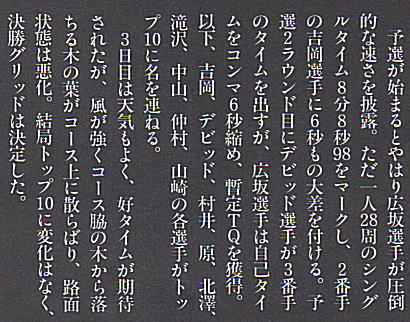 予選が始まるとやはり広坂選手が圧倒
的な速さを披露。ただ一人28周のシング
ルタイム8分8秒98をマークし、2番手
の吉岡選手に6秒もの大差を付ける。予
選2ラウンド目にデビッド選手が3番手
のタイムを出すが、広坂選手は自己タイ
ムをコンマ6秒縮め、暫定TQを獲得。
以下、吉岡、デビッド、村井、原、北澤、
滝沢、中山、仲村、山崎の各選手がトッ
プ10に名を連ねる。
3日目は天気もよく、好タイムが期待
されたが、風が強くコース脇の木から落
ちる木の葉がコース上に散らばり、路面
状態は悪化。結局トップ10に変化はなく、
決勝グリッドは決定した。